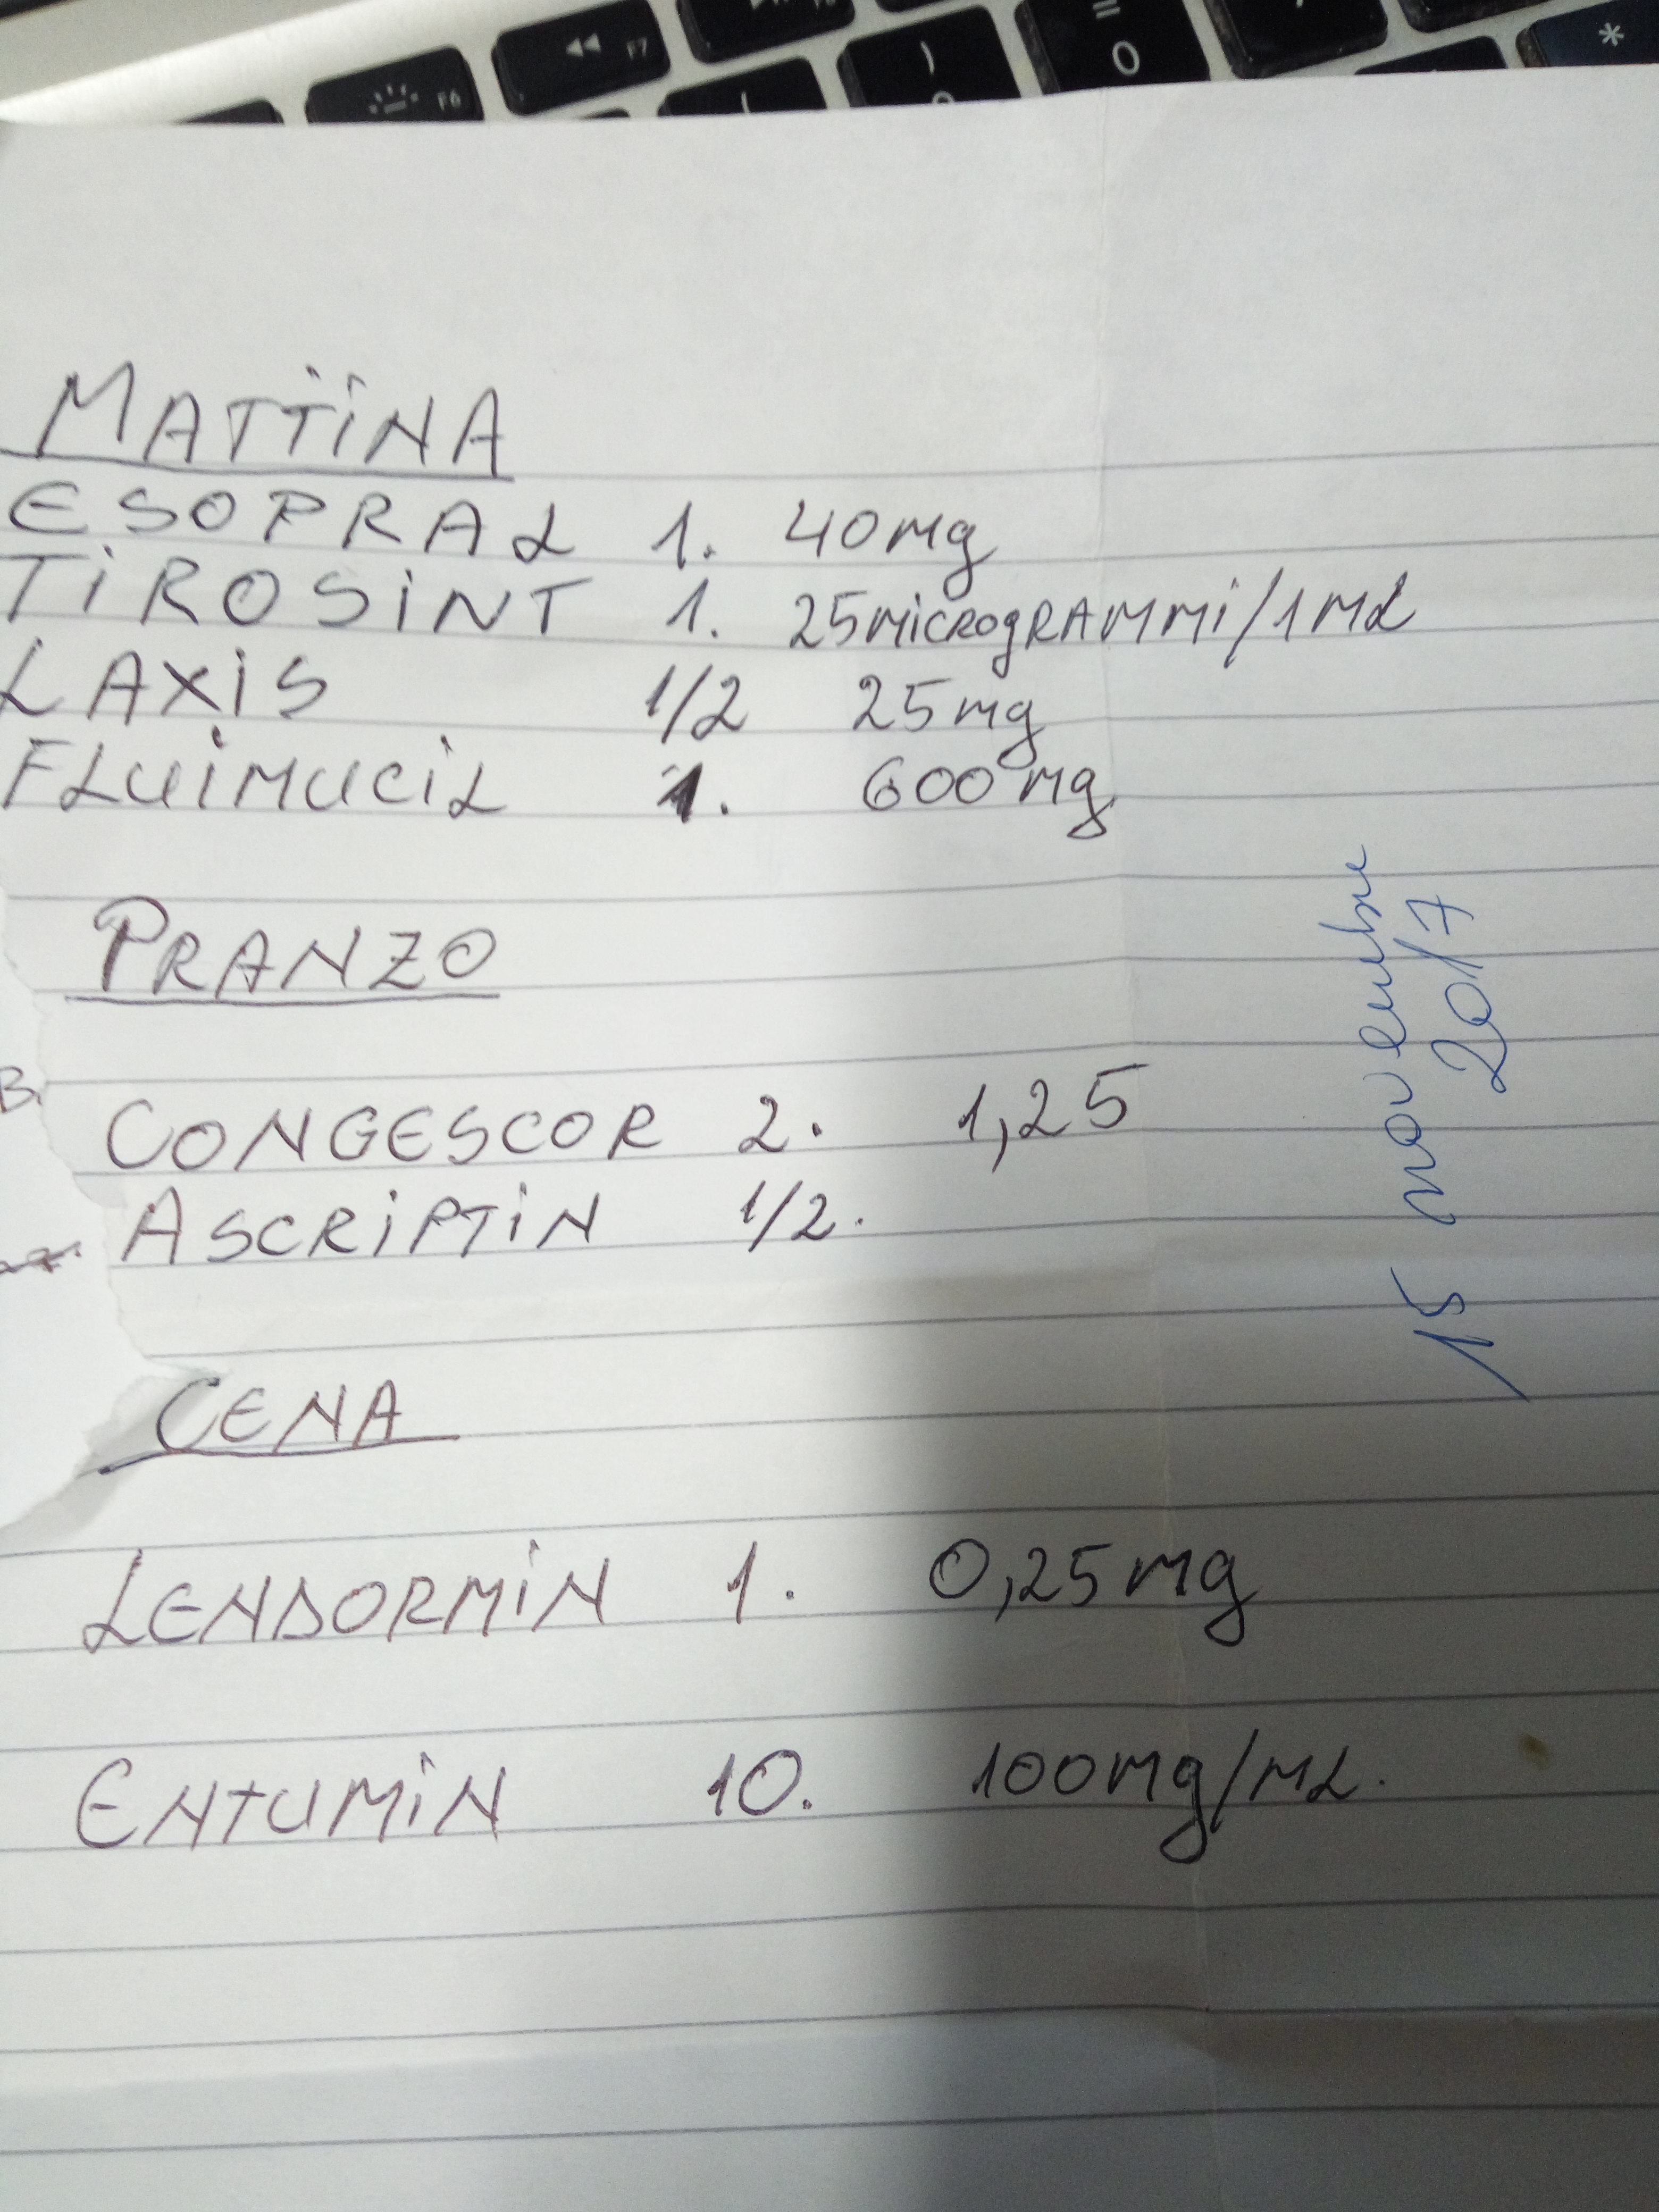 F6
F7
)
0
*
MATTINA
ESOPRAL 1. 40mg
TIROSINT 1. 25microgRAMMi/1ML
LAXIS 1/2 25mg
FLUIMUCIL 1. 600mg
PRANZO
B.
CONGESCOR 2. 1,25
ASCRIPTIN 1/2.
CENA
LENDORMIN 1. 0,25mg
ENTUMIN 10. 100mg/ML.
15 novembre
2017